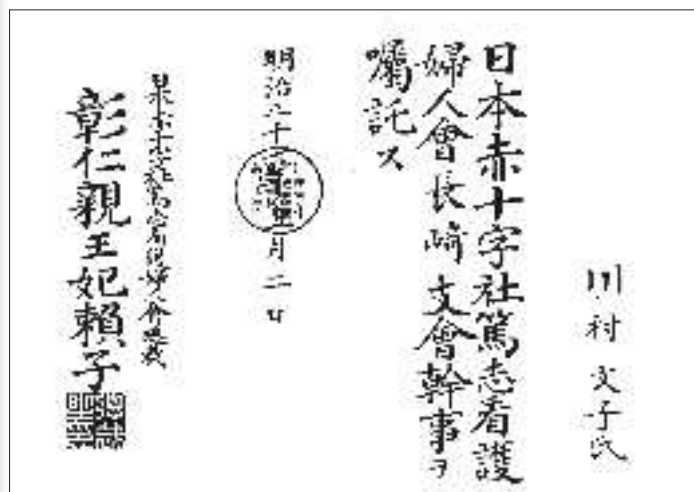 川村文子氏
日本赤十字社篤志看護
婦人會長崎支會幹事ヲ
囑託ス
明治三十 月二日
日本赤十字社篤志看護婦人會總裁
彰仁親王妃賴子